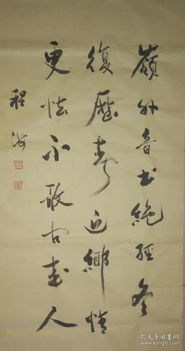 嶺外音書絕經冬
復歷春近鄉情
更怯不敢問來人
程海